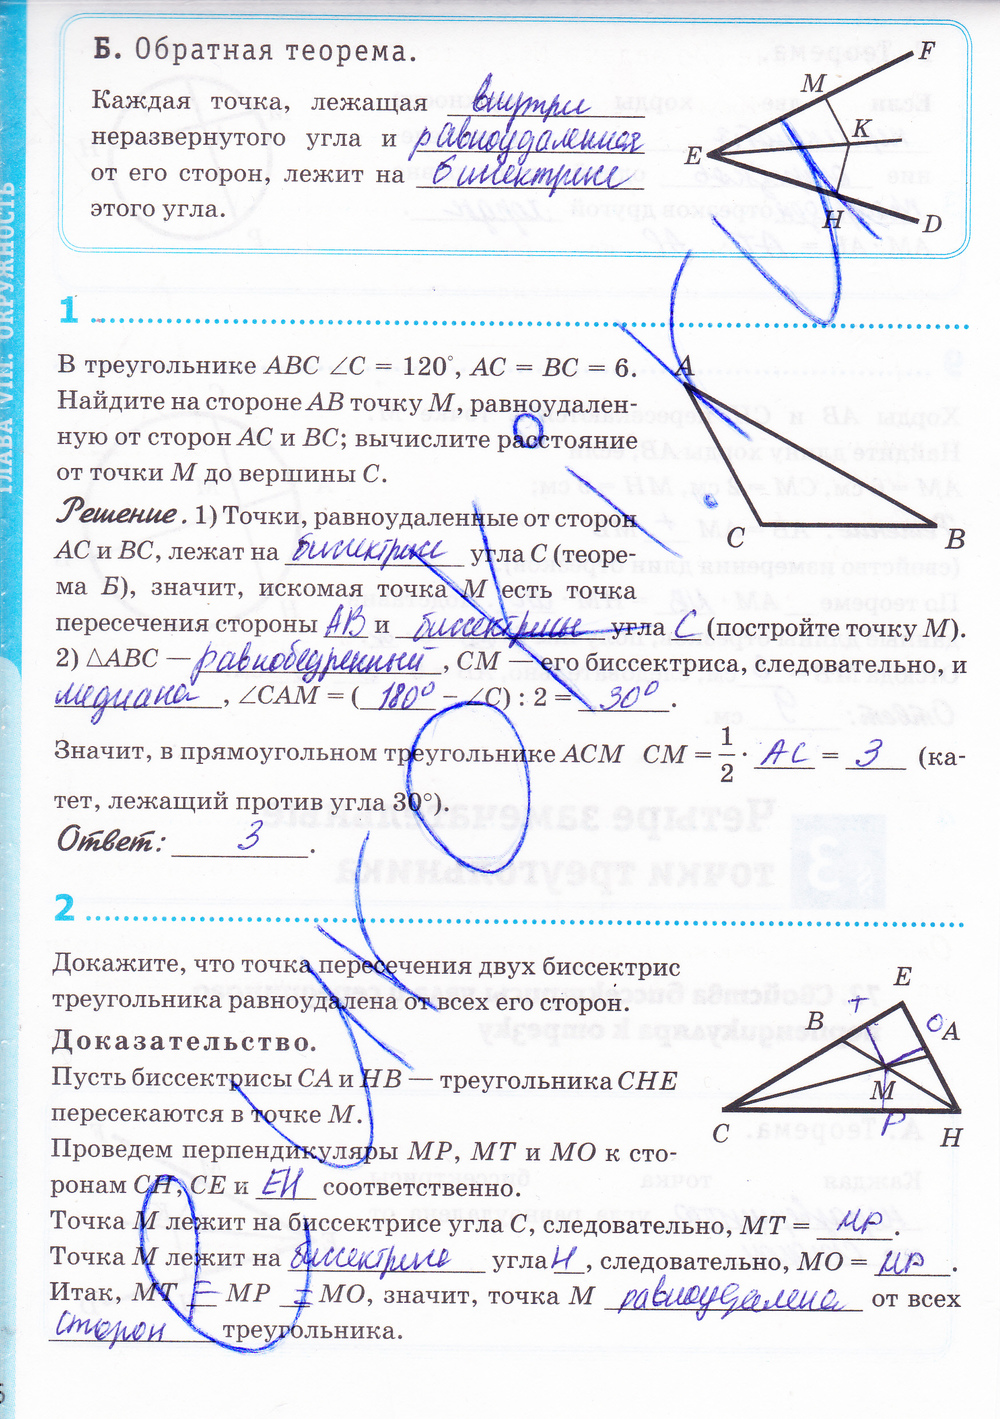 Б. Обратная теорема.
Каждая точка, лежащая внутри
неразвернутого угла и равноудаленная
от его сторон, лежит на биссектрисе
этого угла.
F
M
K
E
H
D
ГЛАВА VIII. ОКРУЖНОСТЬ
1
В треугольнике ABC ∠C = 120°, AC = BC = 6.
Найдите на стороне AB точку M, равноудален-
ную от сторон AC и BC; вычислите расстояние
от точки M до вершины C.
A
C
B
Решение. 1) Точки, равноудаленные от сторон
AC и BC, лежат на биссектрисе угла C (теоре-
ма Б), значит, искомая точка M есть точка
пересечения стороны AB и биссектрисы угла C (постройте точку M).
2) △ABC — равнобедренный, CM — его биссектриса, следовательно, и
медиана, ∠CAM = (180° − ∠C) : 2 = 30°.
Значит, в прямоугольном треугольнике ACM CM = 1/2 · AC = 3 (ка-
тет, лежащий против угла 30°).
Ответ: 3.
2
Докажите, что точка пересечения двух биссектрис
треугольника равноудалена от всех его сторон.
Доказательство.
Пусть биссектрисы CA и HB — треугольника CHE
пересекаются в точке M.
Проведем перпендикуляры MP, MT и MO к сто-
ронам CH, CE и EH соответственно.
E
T
B
O
A
M
C
P
H
Точка M лежит на биссектрисе угла C, следовательно, MT = MP.
Точка M лежит на биссектрисе угла H, следовательно, MO = MP.
Итак, MT = MP = MO, значит, точка M равноудалена от всех
сторон треугольника.